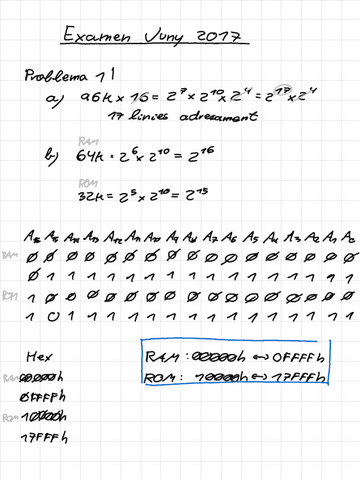 Examen Juny 2017
Problema 1
a) 96k x 16 = 2^7 x 2^10 x 2^4 = 2^17 x 2^4
17 línies adreçament
RAM
b) 64k = 2^6 x 2^10 = 2^16
ROM
32k = 2^5 x 2^10 = 2^15
A16 A15 A14 A13 A12 A11 A10 A9 A8 A7 A6 A5 A4 A3 A2 A1 A0
RAM 0 0 0 0 0 0 0 0 0 0 0 0 0 0 0 0 0
0 1 1 1 1 1 1 1 1 1 1 1 1 1 1 1 1
ROM 1 0 0 0 0 0 0 0 0 0 0 0 0 0 0 0 0
1 0 1 1 1 1 1 1 1 1 1 1 1 1 1 1 1
Hex
RAM 00000h
0FFFFh
ROM 10000h
17FFFh
RAM: 00000h ↔ 0FFFFh
ROM: 10000h ↔ 17FFFh